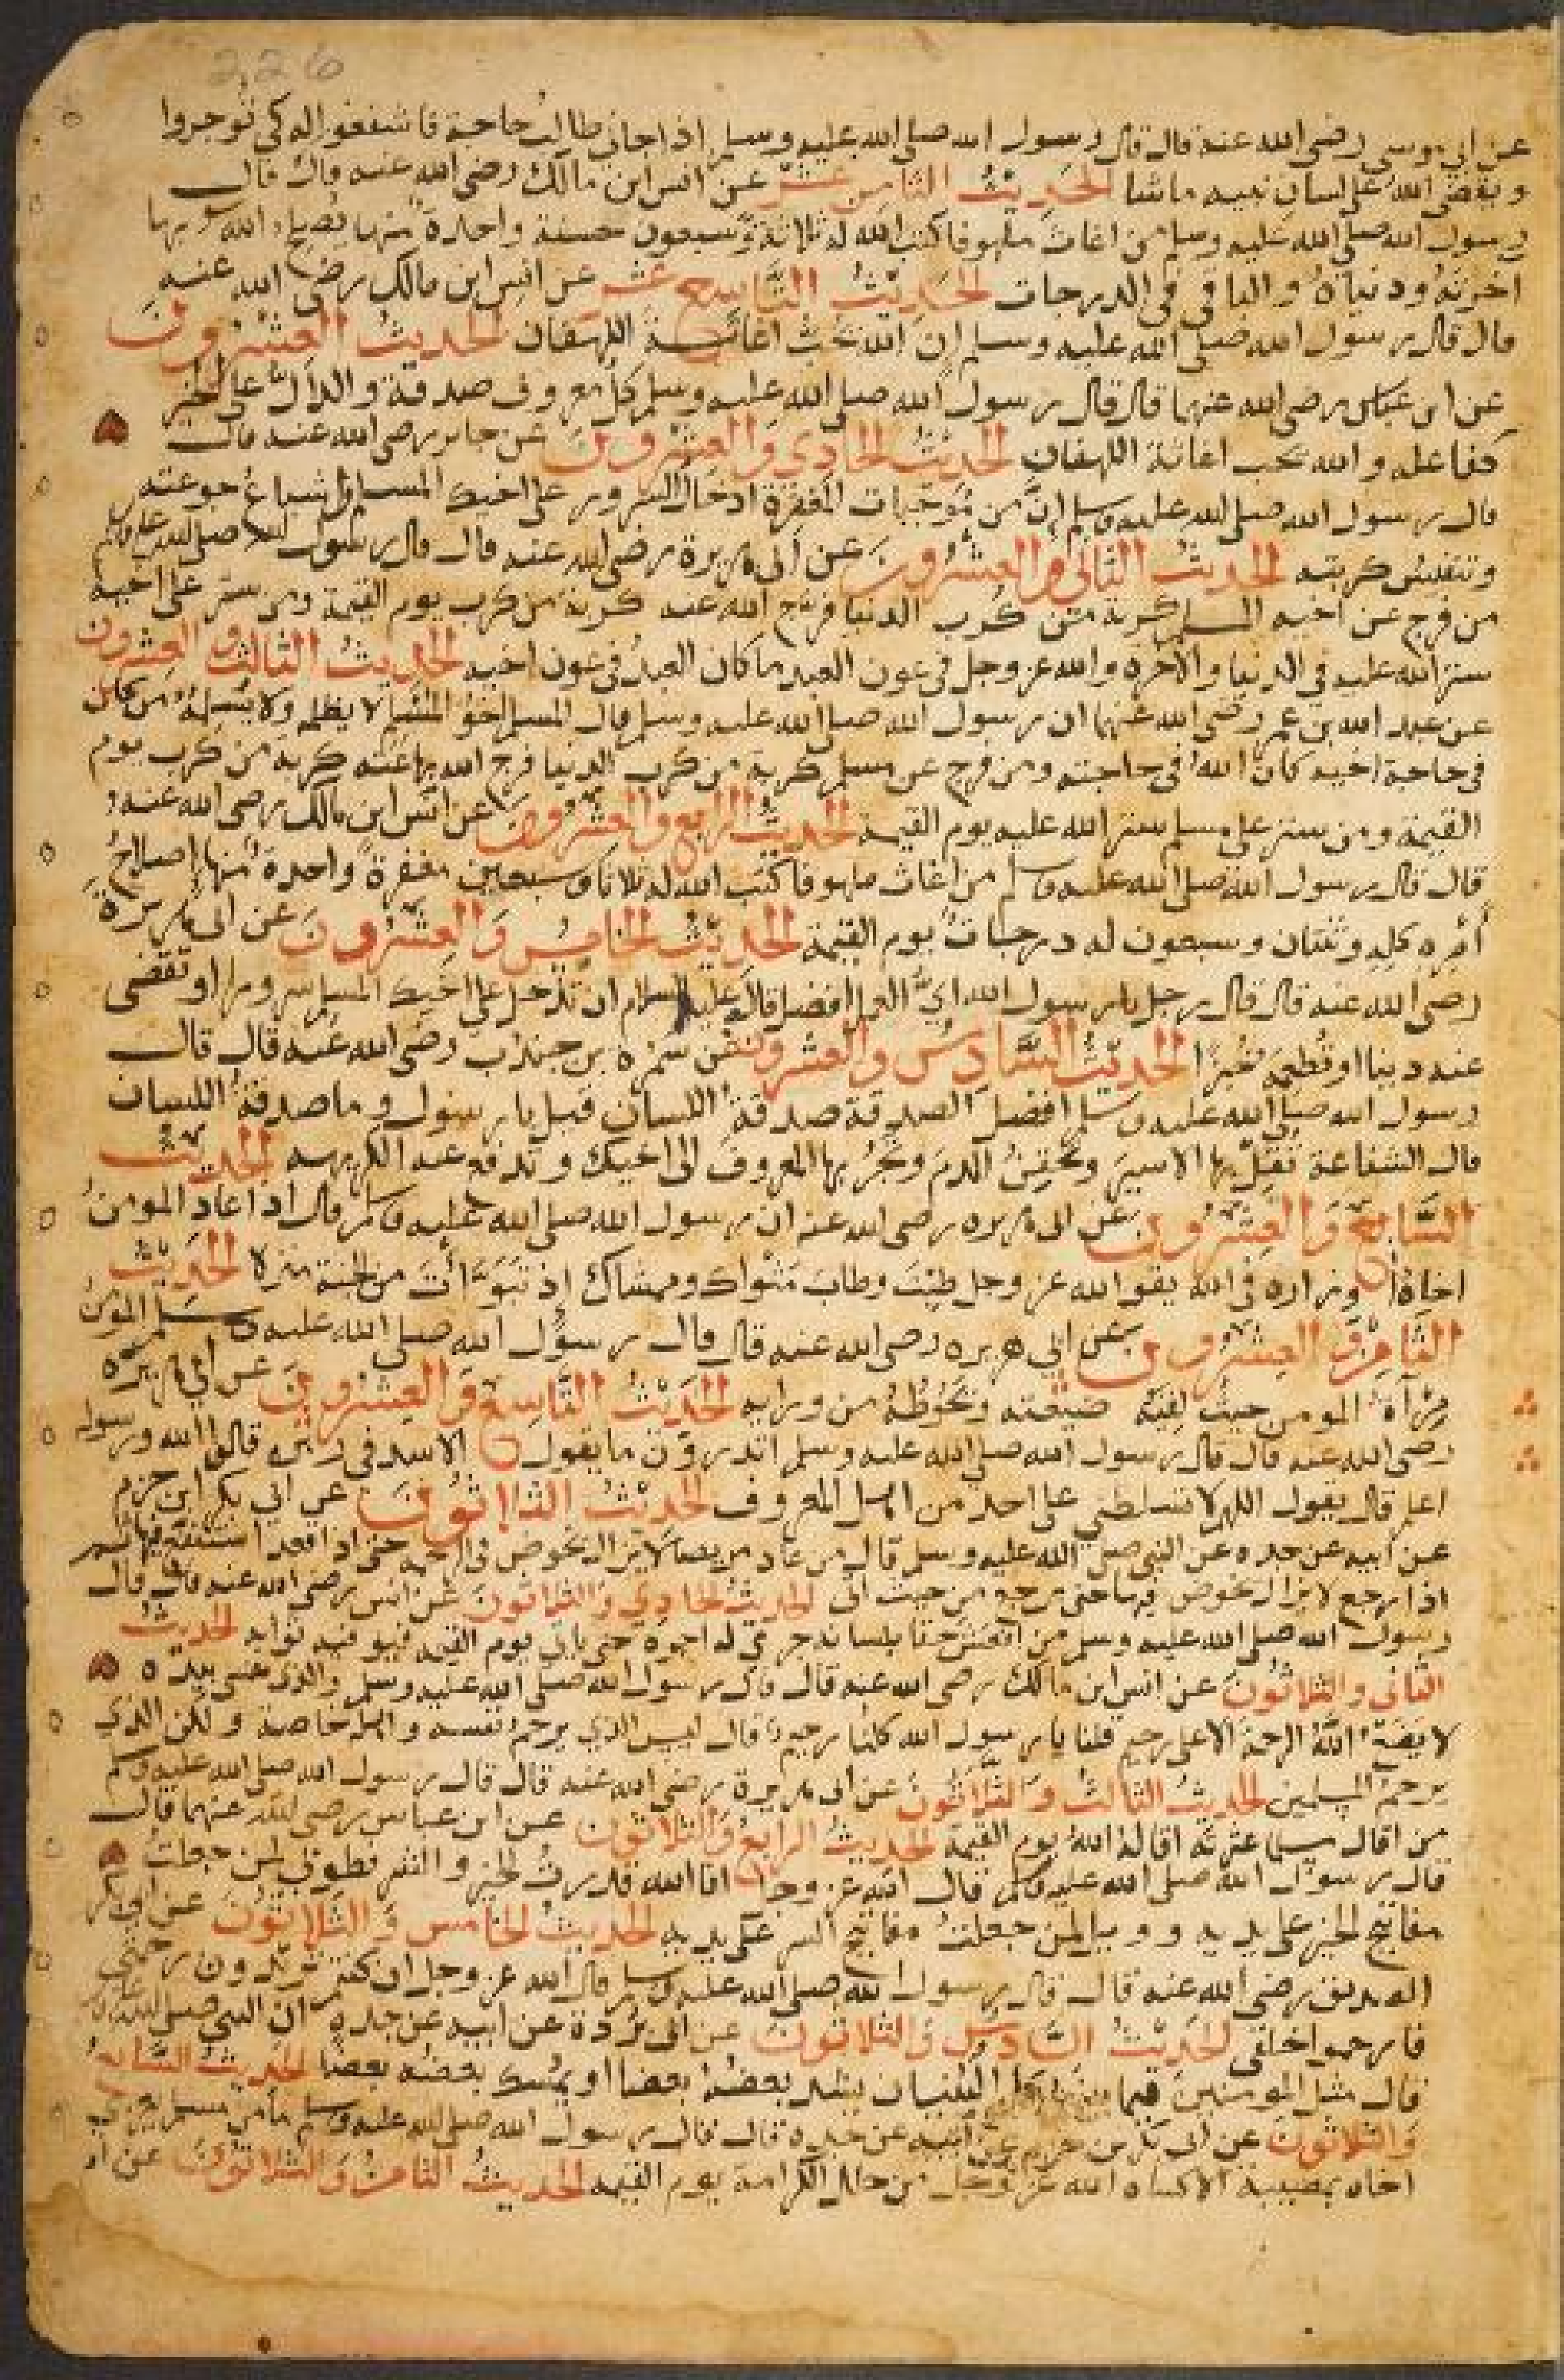 226
عن ابي موسى رضى الله عنه قال قال رسول الله صلى الله عليه وسلم اذا جاني طالب حاجة فاشفعوا له كي توجروا
ويقضى الله على لسان نبيه ماشا الحديث الثامن عشر عن انس ابن مالك رضى الله عنه قال قال
رسول الله صلى الله عليه وسلم من اغاث ملهوفا كتب الله له ثلاثة وسبعون حسنة واحدة منها يصلح الله بها
اخرته ودنياه والباقي في الدرجات الحديث التاسع عشر عن انس ابن مالك رضى الله عنه
قال قال رسول الله صلى الله عليه وسلم ان الله يحب اغاثة اللهفان الحديث العشرون
عن ابن عباس رضى الله عنهما قال قال رسول الله صلى الله عليه وسلم كل معروف صدقة والدال على الخير
كفاعله والله يحب اغاثة اللهفان الحديث الحادي والعشرون عن جابر رضى الله عنه قال
قال رسول الله صلى الله عليه وسلم ان من موجبات المغفرة ادخال السرور على اخيك المسلم اشباع جوعته
وتنفيس كربته الحديث الثاني والعشرون عن ابى هريرة رضى الله عنه قال قال رسول الله صلى الله عليه وسلم
من فرج عن اخيه المسلم كربة من كرب الدنيا فرج الله عنه كربة من كرب يوم القيمة ومن ستر على اخيه
ستر الله عليه في الدنيا والاخرة والله عز وجل في عون العبد ما كان العبد في عون اخيه الحديث الثالث والعشرون
عن عبد الله بن عمر رضى الله عنهما ان رسول الله صلى الله عليه وسلم قال المسلم اخو المسلم لا يظلمه ولا يسلمه من كان
في حاجة اخيه كان الله في حاجته ومن فرج عن مسلم كربة من كرب الدنيا فرج الله بها عنه كربه من كرب يوم
القيمة ومن ستر على مسلم ستر الله عليه يوم القيمة الحديث الرابع والعشرون عن انس ابن مالك رضى الله عنه
قال قال رسول الله صلى الله عليه وسلم من اغاث ملهوفا كتب الله له ثلاثا وسبعين مغفرة واحدة منها اصلاح
امره كله وثنتان وسبعون له درجات يوم القيمة الحديث الخامس والعشرون عن ابى هريرة
رضى الله عنه قال قال رجل يا رسول الله اي العمل افضل قال عليه السلام ان تدخل على اخيك المسلم سرورا او تقضى
عنه دينا او تطعمه خبزا الحديث السادس والعشرون عن سمرة بن جندب رضى الله عنه قال قال
رسول الله صلى الله عليه وسلم افضل الصدقة صدقة اللسان قيل يا رسول وما صدقة اللسان
قال الشفاعة تفك بها الاسير وتحقن الدم وتجر بها المعروف الى اخيك وتدفع عنه الكريهه الحديث
السابع والعشرون عن ابى هريره رضى الله عنه ان رسول الله صلى الله عليه وسلم قال اذا عاد المومن
اخاه او زاره في الله يقول الله عز وجل طبت وطاب مثواك وممشاك اذ تبوأت من الجنة منزلا الحديث
الثامن والعشرون عن ابي هريره رضى الله عنه قال قال رسول الله صلى الله عليه وسلم المومن
مرآة المومن حيث لقيه ضيعته وتحوطه من ورايه الحديث التاسع والعشرون عن ابي هريرة
رضى الله عنه قال قال رسول الله صلى الله عليه وسلم اتدرون ما يقول الاسد في زئيره قالوا الله ورسوله
اعلم قال يقول اللهم لا تسلطني على احد من اهل المعروف الحديث الثلاثون عن ابي بكر ابن حزم
عن ابيه عن جده عن النبى صلى الله عليه وسلم قال من عاد مريضا لا يزال يخوض في الرحمة حتى اذا قعد استنقع فيها ثم
اذا رجع لا يزال يخوض فيها حتى يرجع من حيث اتى الحديث الحادي والثلاثون عن انس رضى الله عنه قال قال
رسول الله صلى الله عليه وسلم من انعش حقا بلسانه جري له اجره حتى ياتى يوم القيمه فيوفيه ثوابه الحديث
الثانى والثلاثون عن انس ابن مالك رضى الله عنه قال قال رسول الله صلى الله عليه وسلم والذى نفسى بيده
لا يضع الله الرحمة الا على رحيم قلنا يا رسول الله كلنا رحيم قال ليس الذي يرحم نفسه واهله خاصة ولكن الذي
يرحم المسلمين الحديث الثالث والثلاثون عن ابى هريرة رضى الله عنه قال قال رسول الله صلى الله عليه وسلم
من اقال مسلما عثرته اقاله الله يوم القيمة الحديث الرابع والثلاثون عن ابن عباس رضى الله عنهما قال
قال رسول الله صلى الله عليه وسلم قال الله عز وجل انا الله قدرت الخير والشر فطوبى لمن جعلت
مفاتيح الخير على يديه وويل لمن جعلت مفاتيح الشر على يديه الحديث الخامس والثلاثون عن ابى بكر
الصديق رضى الله عنه قال قال رسول الله صلى الله عليه وسلم قال الله عز وجل ان كنتم تريدون رحمتى
فارحموا خلقى الحديث السادس والثلاثون عن ابى بردة عن ابيه عن جده ان النبى صلى الله عليه وسلم
قال مثل المومنين فيما بينهم كمثل البنيان يشد بعضه بعضا او يمسك بعضه بعضا الحديث السابع
والثلاثون عن ابى بكر بن حزم عن ابيه عن جده قال قال رسول الله صلى الله عليه وسلم ما من مسلم يعزي
اخاه بمصيبة الا كساه الله عز وجل من حلل الكرامة يوم القيمه الحديث الثامن والثلاثون عن